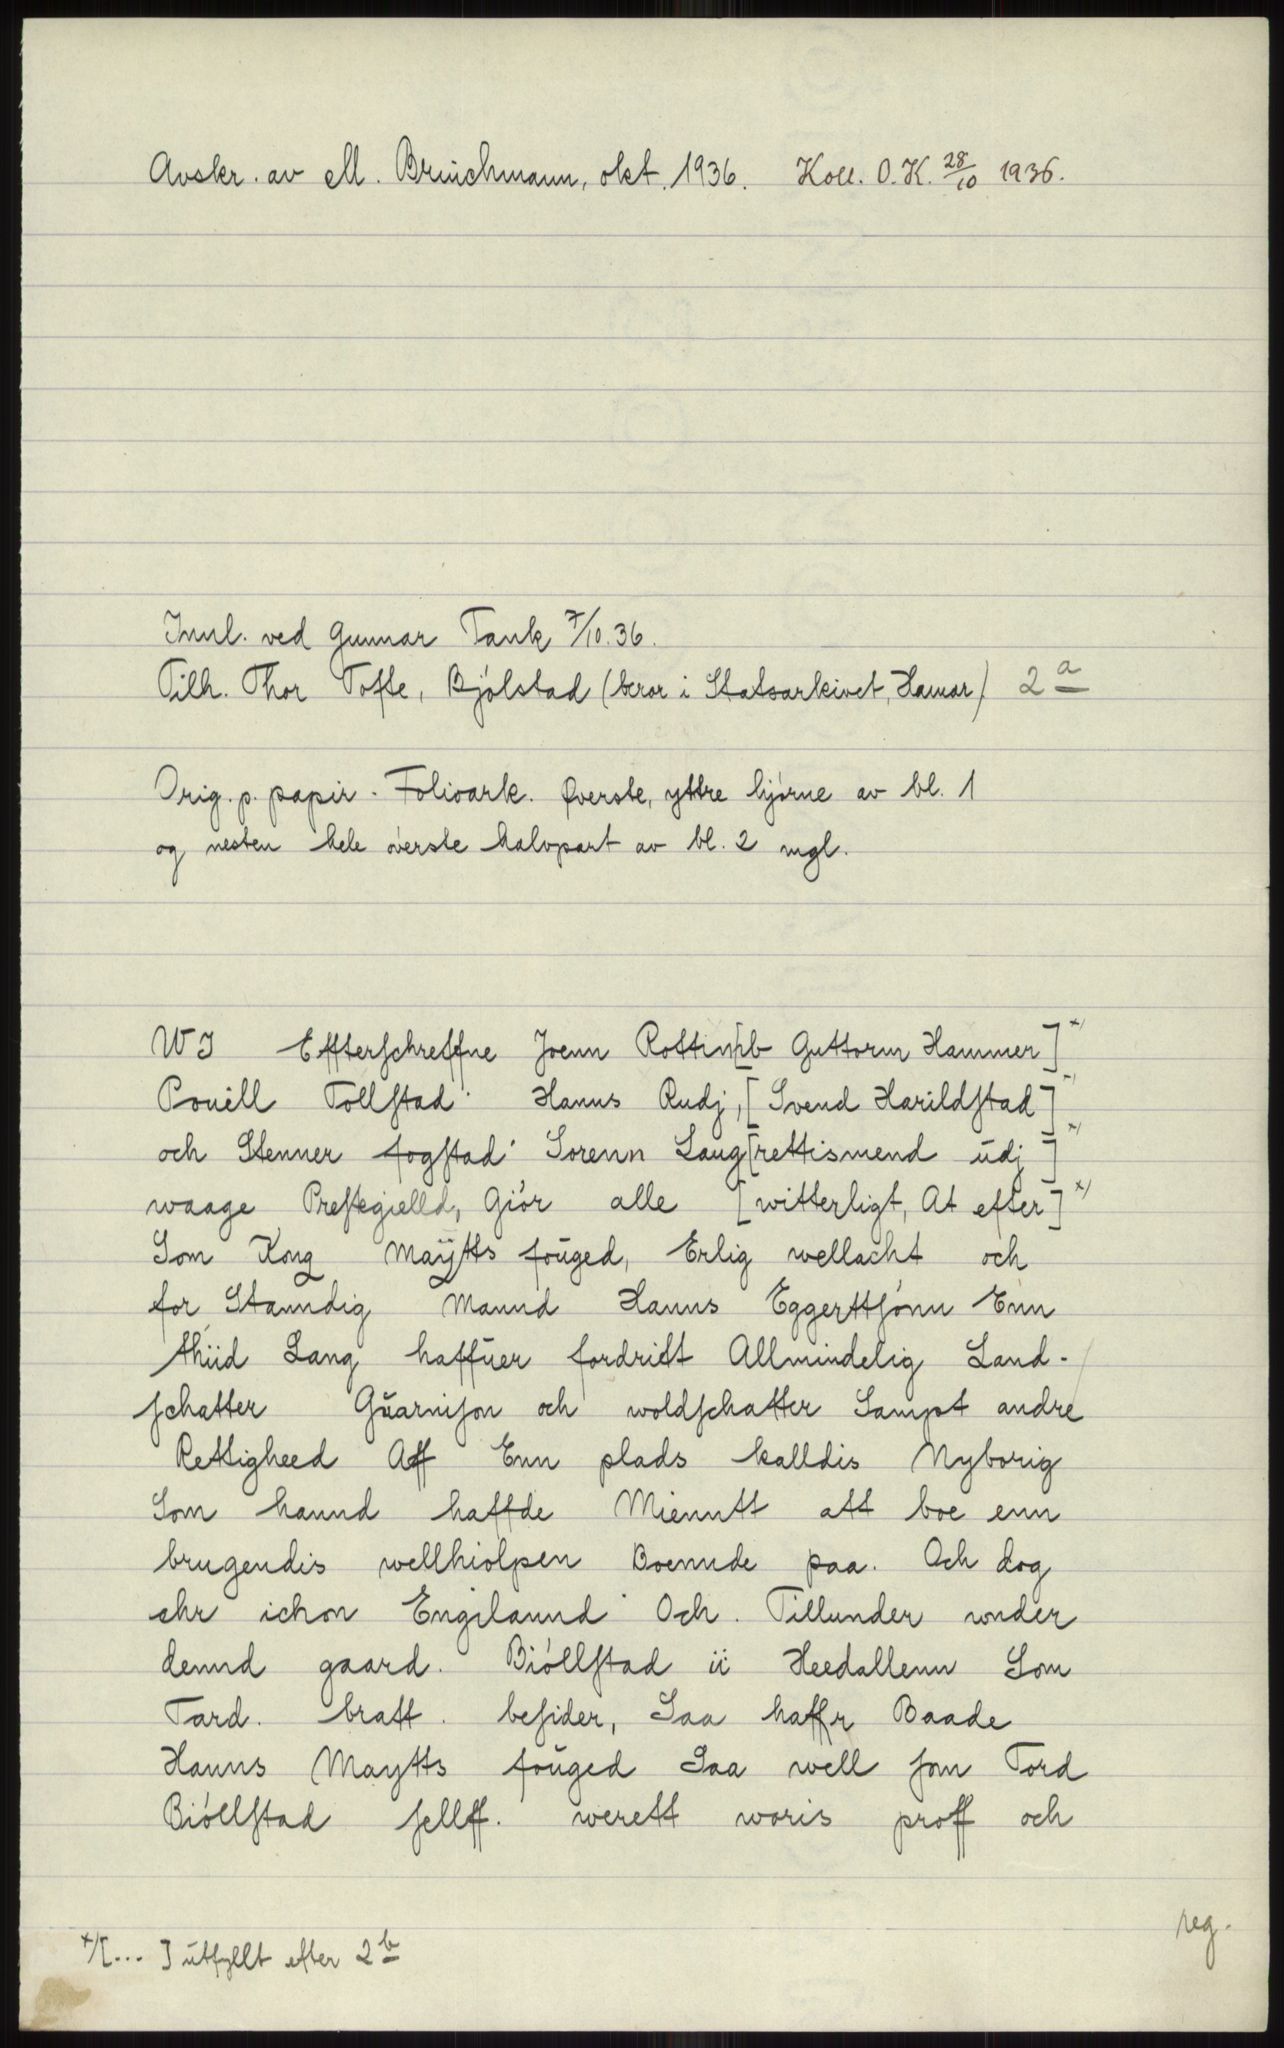 Avskr. av M. Brinchmann, okt. 1936. Koll. O.K. 28/10 1936.
Innl. ved Gunnar Tank 7/10.36.
Tilh. Thor Tofte, Bjólstad (beror i Statsarkivet, Hamar) 2a
Orig. p. papir. Folioark. Øverste, yttre hjórne av bl. 1
og nesten hele óverste halvpart av bl. 2 mgl.
WJ Effterschreffne Joenn Rottin[b Guttorm Hammer] x)
Pouell Tollstad Hanns Rudj, [Svend Harildstad] x)
och Stenner fogstad Sorenn Laug[rettismend udj] x)
waage Prestegielld, Giór alle [witterligt, At efter] x)
Som Kong Maÿtts foŭged, Erlig wellacht och
for Stanndig Mannd Hanns Eggerttsónn Enn
thiid Lang haffŭer fordridt Allmindelig Land-
schatter Gŭarnison och woldschatter Sampt andre
Rettigheed Aff Enn plads kalldis Nyborig
Som hannd haffde Mienntt att boe enn
brugendis wellhiolpen Boennde paa. Och dog
ehr ickon Engilannd Och. Tillunder wnder
dennd gaard. Bióllstad ii Heedallenn Som
Tard. bratt. besider, Saa haffr Baade
Hanns Maytts foŭged Saa well som Tord
Bióllstad sellff. werett woris proff och
x)[... ] utfyllt efter 2b
reg.